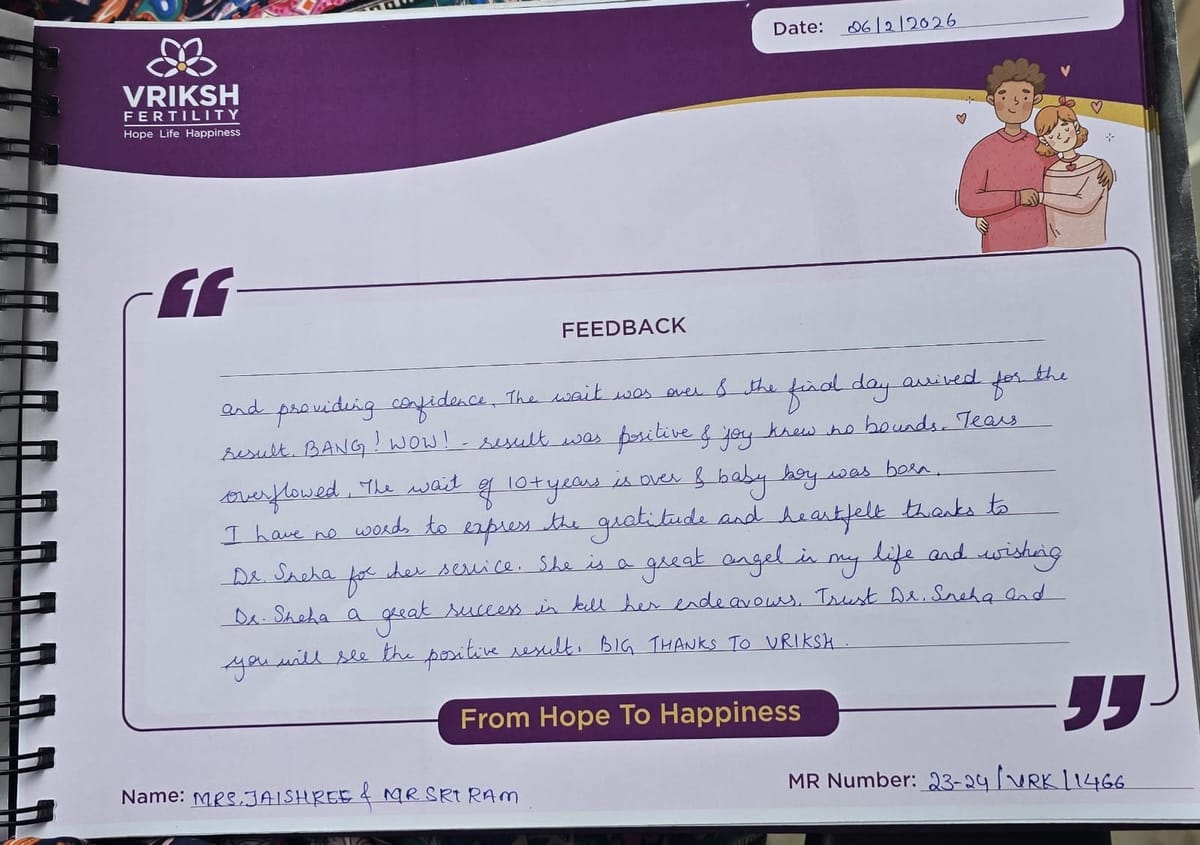 Date: 06/2/2026
VRIKSH
FERTILITY
Hope Life Happiness
FEEDBACK
and providing confidence. The wait was over & the final day arrived for the
result. BANG! WOW! - result was positive & joy knew no bounds. Tears
overflowed. The wait of 10+years is over & baby boy was born.
I have no words to express the gratitude and heartfelt thanks to
Dr. Sneha for her service. She is a great angel in my life and wishing
Dr. Sneha a great success in her endeavours. Trust Dr. Sneha and
you will see the positive result. BIG THANKS TO VRIKSH.
From Hope To Happiness
Name: MRS. JAISHREE & MR SRI RAM
MR Number: 23-24/VRK/1466